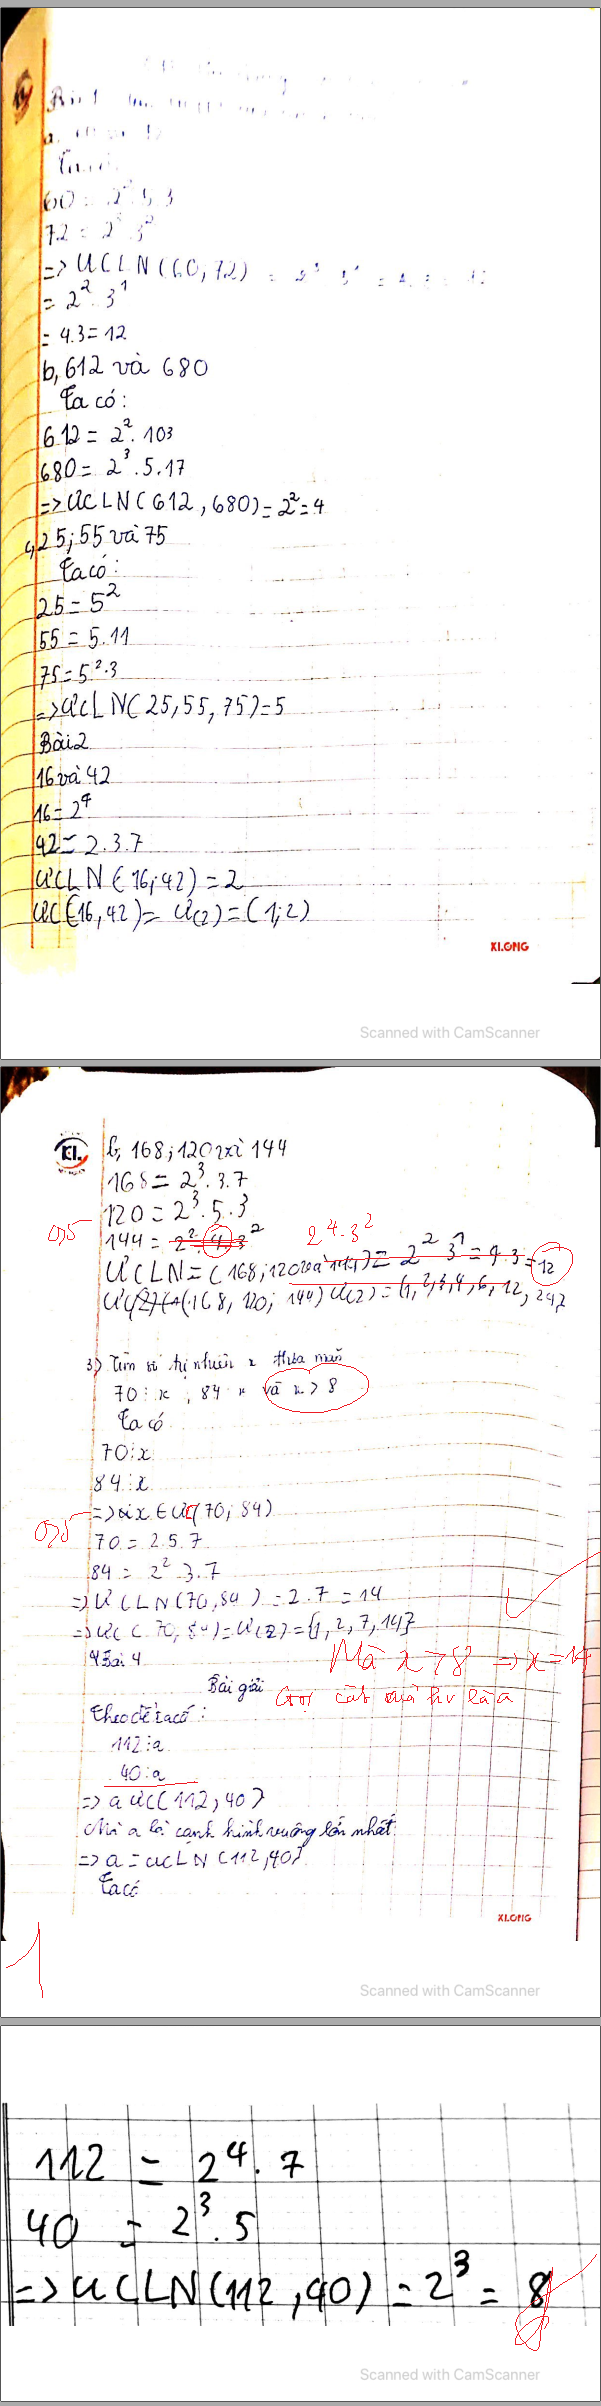 Bài 1
a.
Ta có:
60 = 2². 5. 3
72 = 2³. 3²
=> ƯCLN(60, 72)
= 2². 3¹
= 4.3 = 12
b, 612 và 680
Ta có:
612 = 2². 103
680 = 2³. 5. 17
=> ƯCLN(612, 680) = 2² = 4
c, 25; 55 và 75
Ta có:
25 = 5²
55 = 5.11
75 = 5².3
=> ƯCLN(25, 55, 75) = 5
Bài 2
16 và 42
16 = 2⁴
42 = 2.3.7
ƯCLN (16; 42) = 2
ƯC(16, 42) = Ư(2) = (1; 2)
KLONG
Scanned with CamScanner
KI.
b, 168; 120 và 144
168 = 2³. 3. 7
120 = 2³. 5. 3
0,5
144 = 2². 4. 3² 2⁴. 3²
ƯCLN = (168; 120 và 144) = 2² 3¹ = 4.3 = 12
(168, 120; 144) Ư(2) = (1, 2, 3, 4, 6, 12, 24}
3) Tìm số tự nhiên x thỏa mãn
70 ⋮ x, 84 ⋮ x và x > 8
Ta có
70 ⋮ x
84 ⋮ x
=> x ∈ ƯC(70; 84)
0,5
70 = 2.5.7
84 = 2². 3. 7
=> ƯCLN(70, 84) = 2.7 = 14
=> ƯC(70, 84) = Ư(2) = {1, 2, 7, 14}
Mà x > 8 => x = 14
Bài 4
Bài giải
Gọi cạnh hv là a
Theo đề ta có:
112 ⋮ a
40 ⋮ a
=> a ƯC(112, 40)
Mà a là cạnh hình vuông lớn nhất
=> a = ƯCLN (112, 40)
Ta có
KLONG
1
Scanned with CamScanner
112 = 2⁴. 7
40 = 2³. 5
=> ƯCLN(112, 40) = 2³ = 8
Scanned with CamScanner